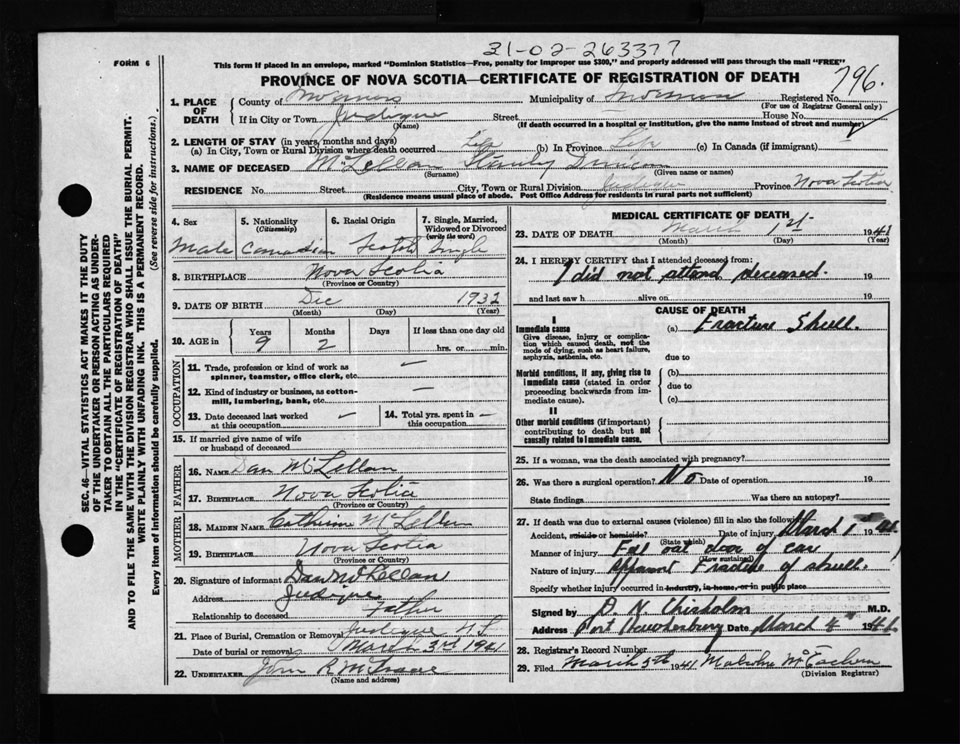 31-02-263377
FORM 6
This form if placed in an envelope, marked "Dominion Statistics—Free, penalty for improper use $300," and properly addressed will pass through the mail "FREE"
PROVINCE OF NOVA SCOTIA—CERTIFICATE OF REGISTRATION OF DEATH
796
1. PLACE OF DEATH
County of Inverness Municipality of Inverness Registered No.
(For use of Registrar General only)
If in City or Town Judique Street House No.
(Name) (If death occurred in a hospital or institution, give the name instead of street and number)
2. LENGTH OF STAY (in years, months and days)
(a) In City, Town or Rural Division where death occurred Life (b) In Province Life (c) In Canada (if immigrant)
3. NAME OF DECEASED McLellan Stanley Duncan
(Surname) (Given name or names)
RESIDENCE No. Street City, Town or Rural Division Judique Province Nova Scotia
(Residence means usual place of abode. Post Office Address for residents in rural parts not sufficient)
4. Sex 5. Nationality (Citizenship) 6. Racial Origin 7. Single, Married, Widowed or Divorced (write the word)
Male Canadian Scotch Single
8. BIRTHPLACE Nova Scotia
(Province or Country)
9. DATE OF BIRTH Dec 1932
(Month) (Day) (Year)
10. AGE in Years Months Days If less than one day old
9 2 hrs. or min.
OCCUPATION
11. Trade, profession or kind of work as spinner, teamster, office clerk, etc. —
12. Kind of industry or business, as cotton-mill, lumbering, bank, etc. —
13. Date deceased last worked at this occupation —
14. Total yrs. spent in this occupation —
15. If married give name of wife or husband of deceased
FATHER
16. NAME Dan McLellan
17. BIRTHPLACE Nova Scotia
(Province or Country)
MOTHER
18. MAIDEN NAME Catherine McLellan
19. BIRTHPLACE Nova Scotia
(Province or Country)
20. Signature of informant Dan McLellan
Address Judique
Relationship to deceased Father
21. Place of Burial, Cremation or Removal Judique N.S.
Date of burial or removal March 3rd 1941
22. UNDERTAKER John R.
(Name and address)
MEDICAL CERTIFICATE OF DEATH
23. DATE OF DEATH March 1st 1941
(Month) (Day) (Year)
24. I HEREBY CERTIFY that I attended deceased from:
I did not attend deceased. 19
and last saw h alive on 19
CAUSE OF DEATH
I
Immediate cause (a) Fracture Skull.
Give disease, injury or complication which caused death, not the mode of dying, such as heart failure, asphyxia, asthenia, etc.
due to
Morbid conditions, if any, giving rise to immediate cause (stated in order proceeding backwards from immediate cause).
(b)
due to
(c)
II
Other morbid conditions (if important) contributing to death but not causally related to immediate cause.
25. If a woman, was the death associated with pregnancy?
26. Was there a surgical operation? No Date of operation 19
State findings Was there an autopsy?
27. If death was due to external causes (violence) fill in also the following:
Accident, suicide or homicide? Date of injury March 1st 1941
(State which)
Manner of injury Fall out door of car
(How sustained)
Nature of injury Apparent Fracture of skull.
Specify whether injury occurred in industry, in home, or in public place
Signed by D. N. Chisholm M.D.
Address Port Hawkesbury Date March 4th 1941
28. Registrar's Record Number
29. Filed March 5th 1941
(Division Registrar)
SEC. 46—VITAL STATISTICS ACT MAKES IT THE DUTY
OF THE UNDERTAKER OR PERSON ACTING AS UNDER-
TAKER TO OBTAIN ALL THE PARTICULARS REQUIRED
IN THE "CERTIFICATE OF REGISTRATION OF DEATH"
AND TO FILE THE SAME WITH THE DIVISION REGISTRAR WHO SHALL ISSUE THE BURIAL PERMIT.
WRITE PLAINLY WITH UNFADING INK. THIS IS A PERMANENT RECORD.
Every item of Information should be carefully supplied. (See reverse side for instructions.)